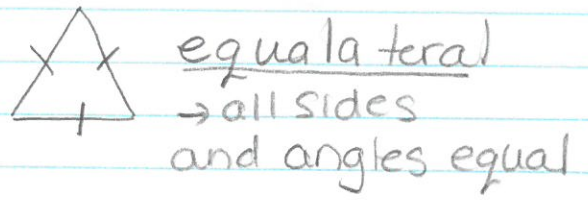 equalateral
→ all sides
and angles equal